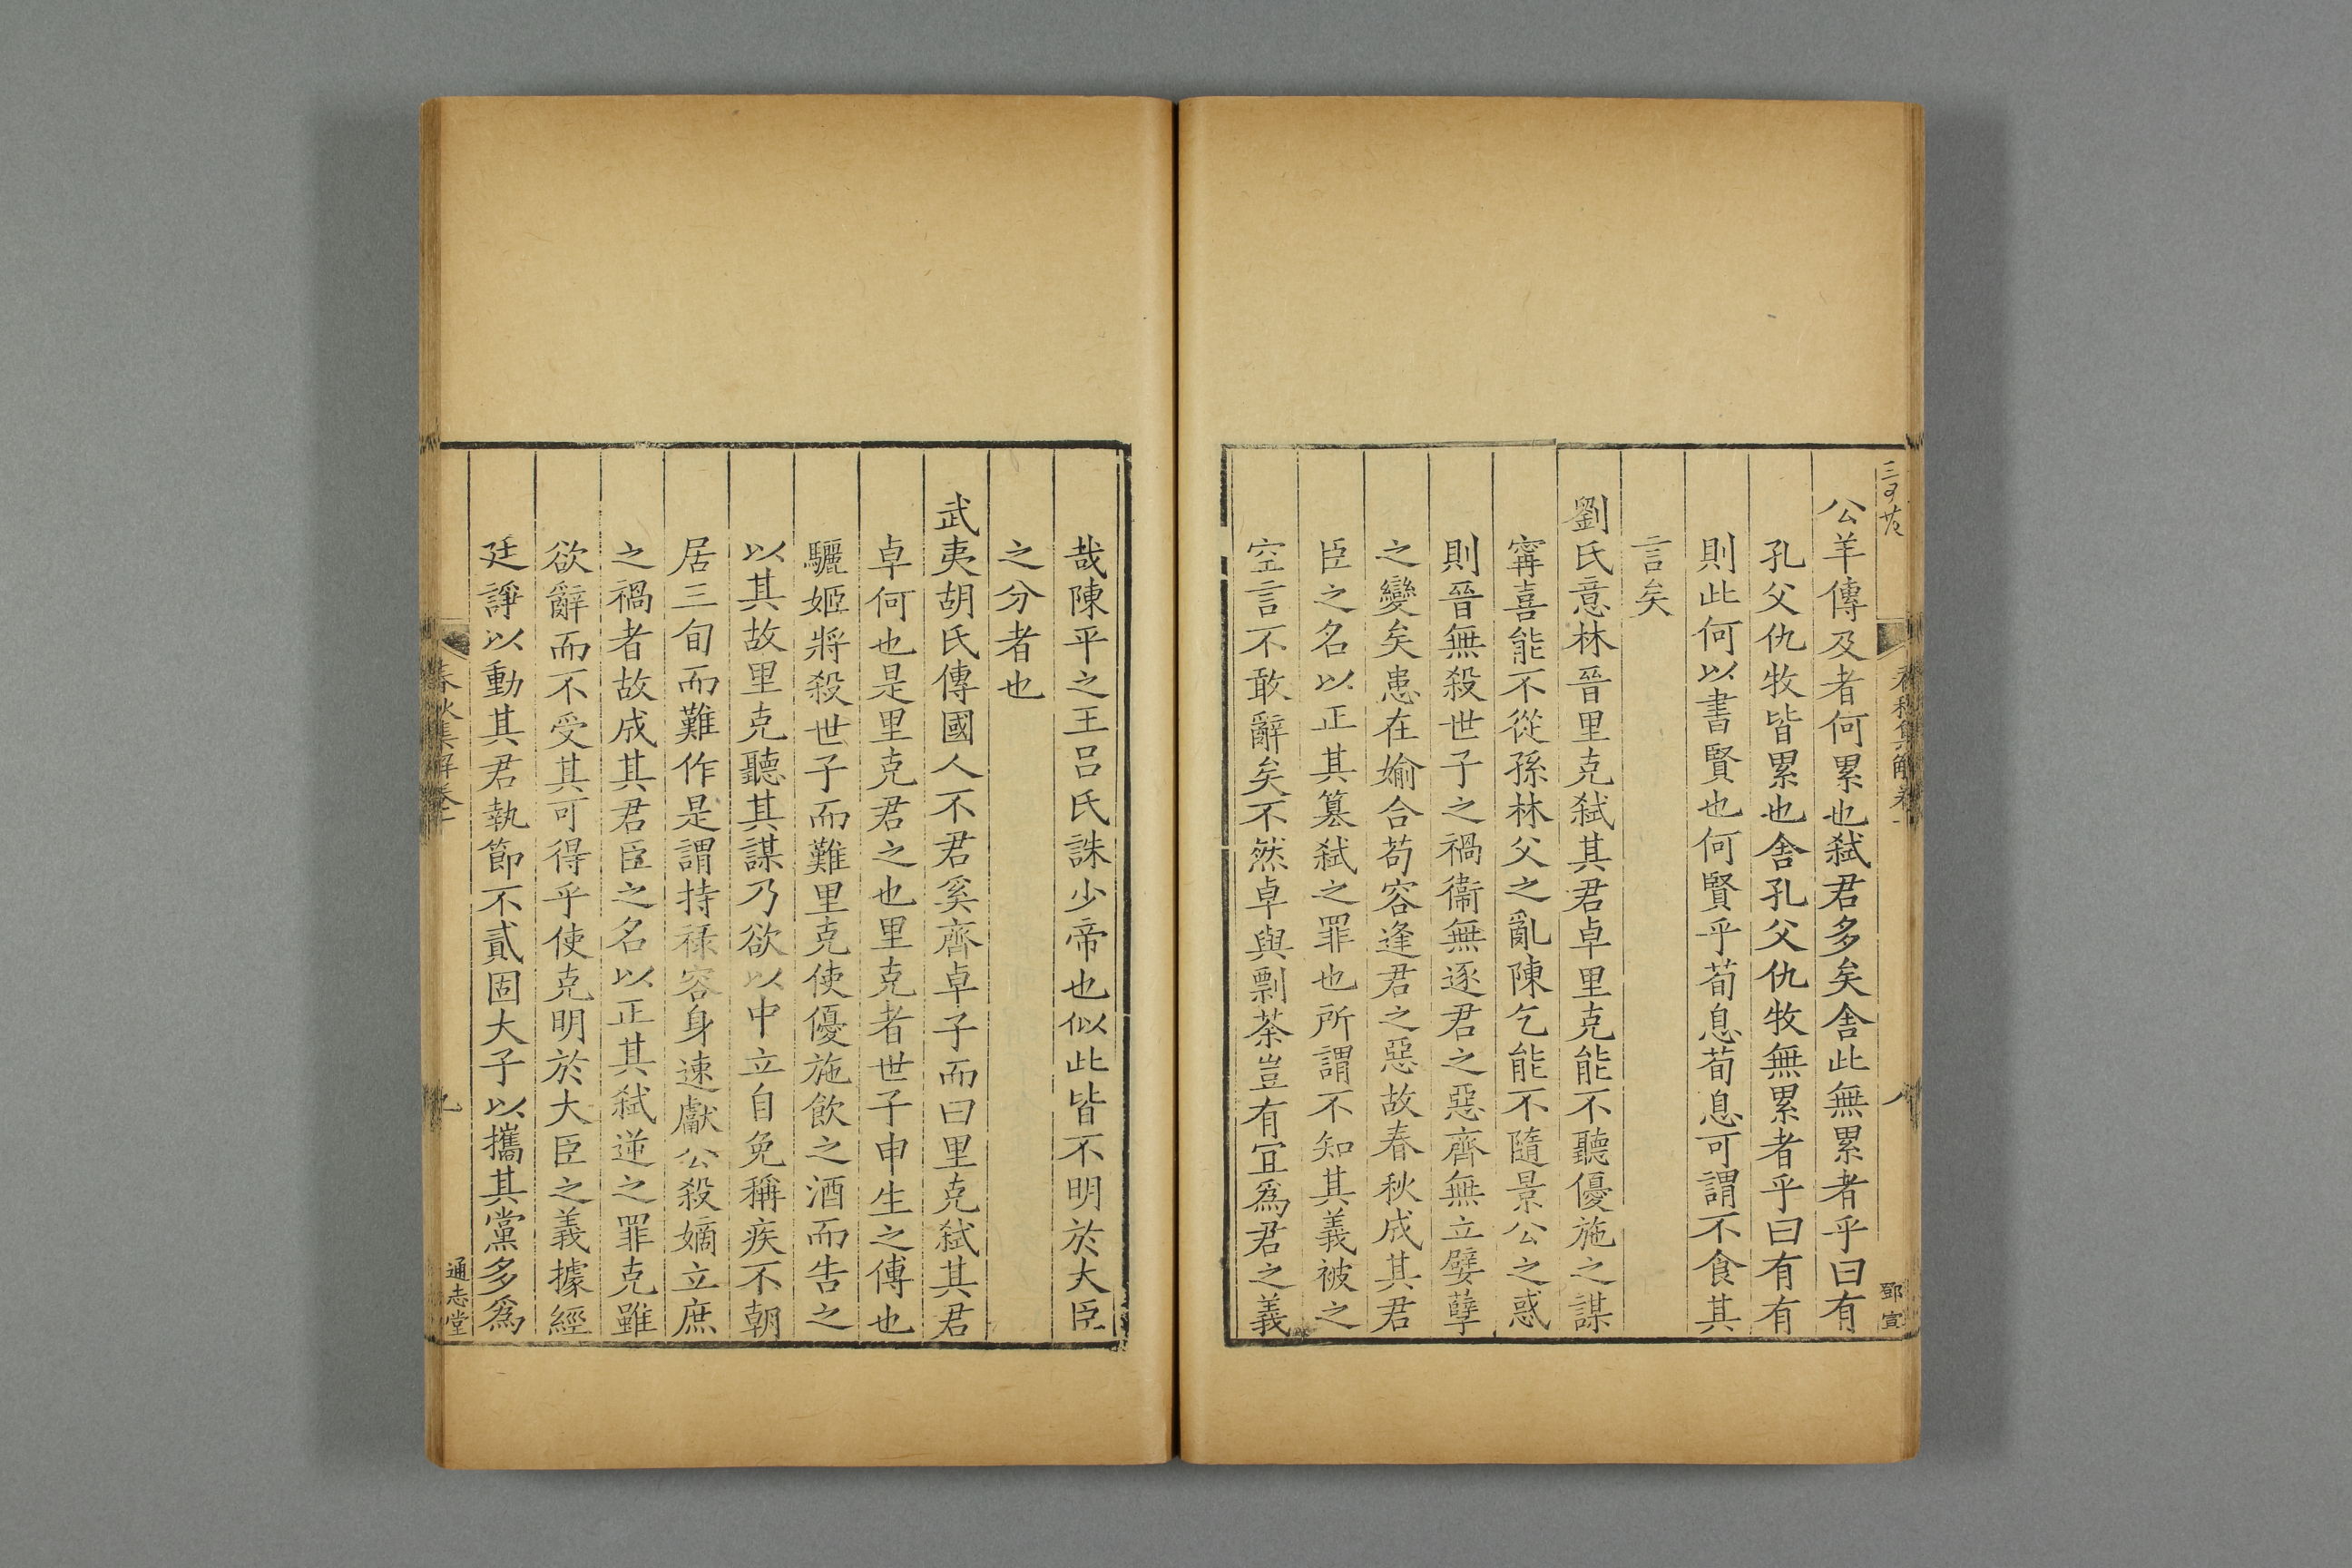 公羊傳及者何累也弑君多矣舍此無累者乎曰有
孔父仇牧皆累也舍孔父仇牧無累者乎曰有有
則此何以書賢也何賢乎荀息荀息可謂不食其
言矣
劉氏意林晉里克弑其君卓里克能不聽優施之謀
甯喜能不從孫林父之亂陳乞能不隨景公之惑
則晉無殺世子之禍衞無逐君之惡齊無立嬖孽
之變矣患在媮合苟容逢君之惡故春秋成其君
臣之名以正其簒弑之罪也所謂不知其義被之
空言不敢辭矣不然卓與剽荼豈有宜爲君之義
鄧宣
哉陳平之王吕氏誅少帝也似此皆不明於大臣
之分者也
武夷胡氏傳國人不君奚齊卓子而曰里克弑其君
卓何也是里克君之也里克者世子申生之傅也
驪姬將殺世子而難里克使優施飮之酒而告之
以其故里克聽其謀乃欲以中立自免稱疾不朝
居三旬而難作是謂持祿容身速獻公殺嫡立庶
之禍者故成其君臣之名以正其弑逆之罪克雖
欲辭而不受其可得乎使克明於大臣之義據經
廷諍以動其君執節不貳固大子以攜其黨多爲
春秋集解卷十
九
通志堂